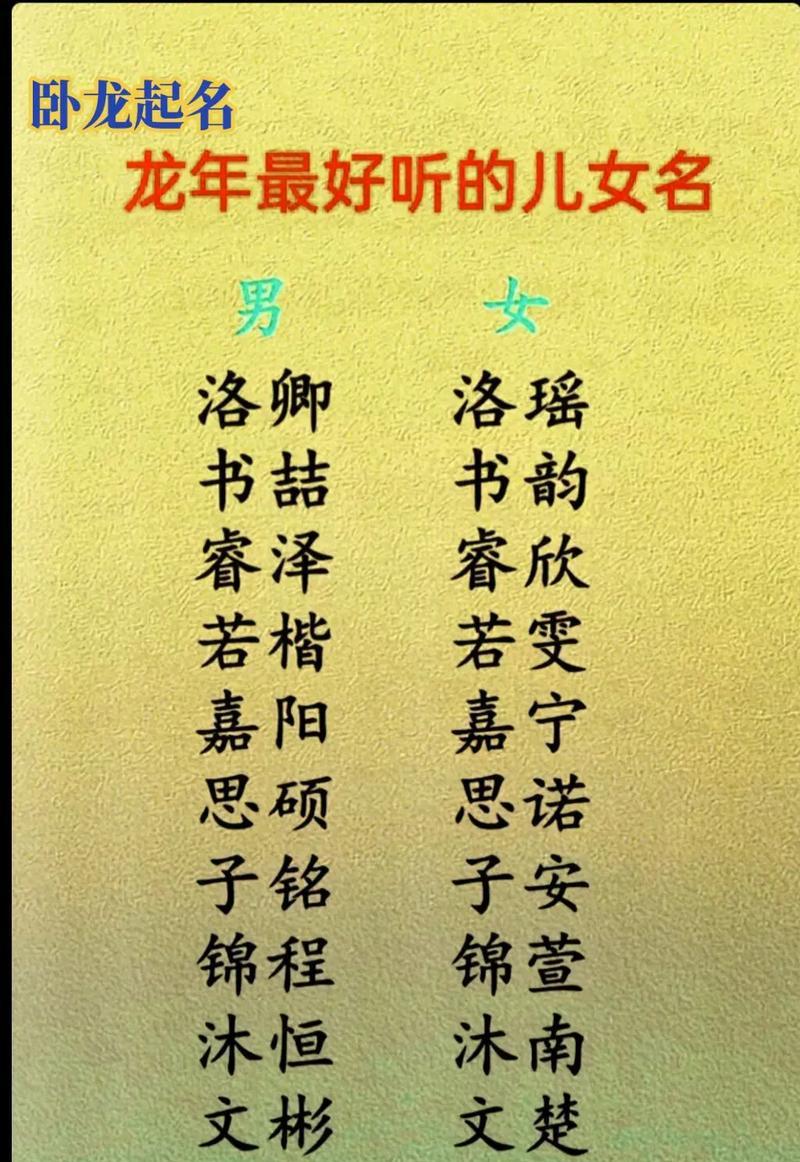 卧龙起名
龙年最好听的儿女名
男 女
洛卿 洛瑶
书喆 书韵
睿泽 睿欣
若楷 若雯
嘉阳 嘉宁
思硕 思诺
子铭 子安
锦程 锦萱
沐恒 沐南
文彬 文楚